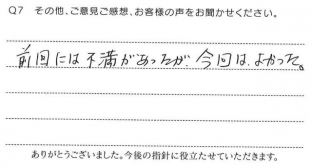 Q7 その他、ご意見ご感想、お客様の声をお聞かせください。
前回には不満があったが、今回は、よかった。
ありがとうございました。今後の指針に役立たせていただきます。